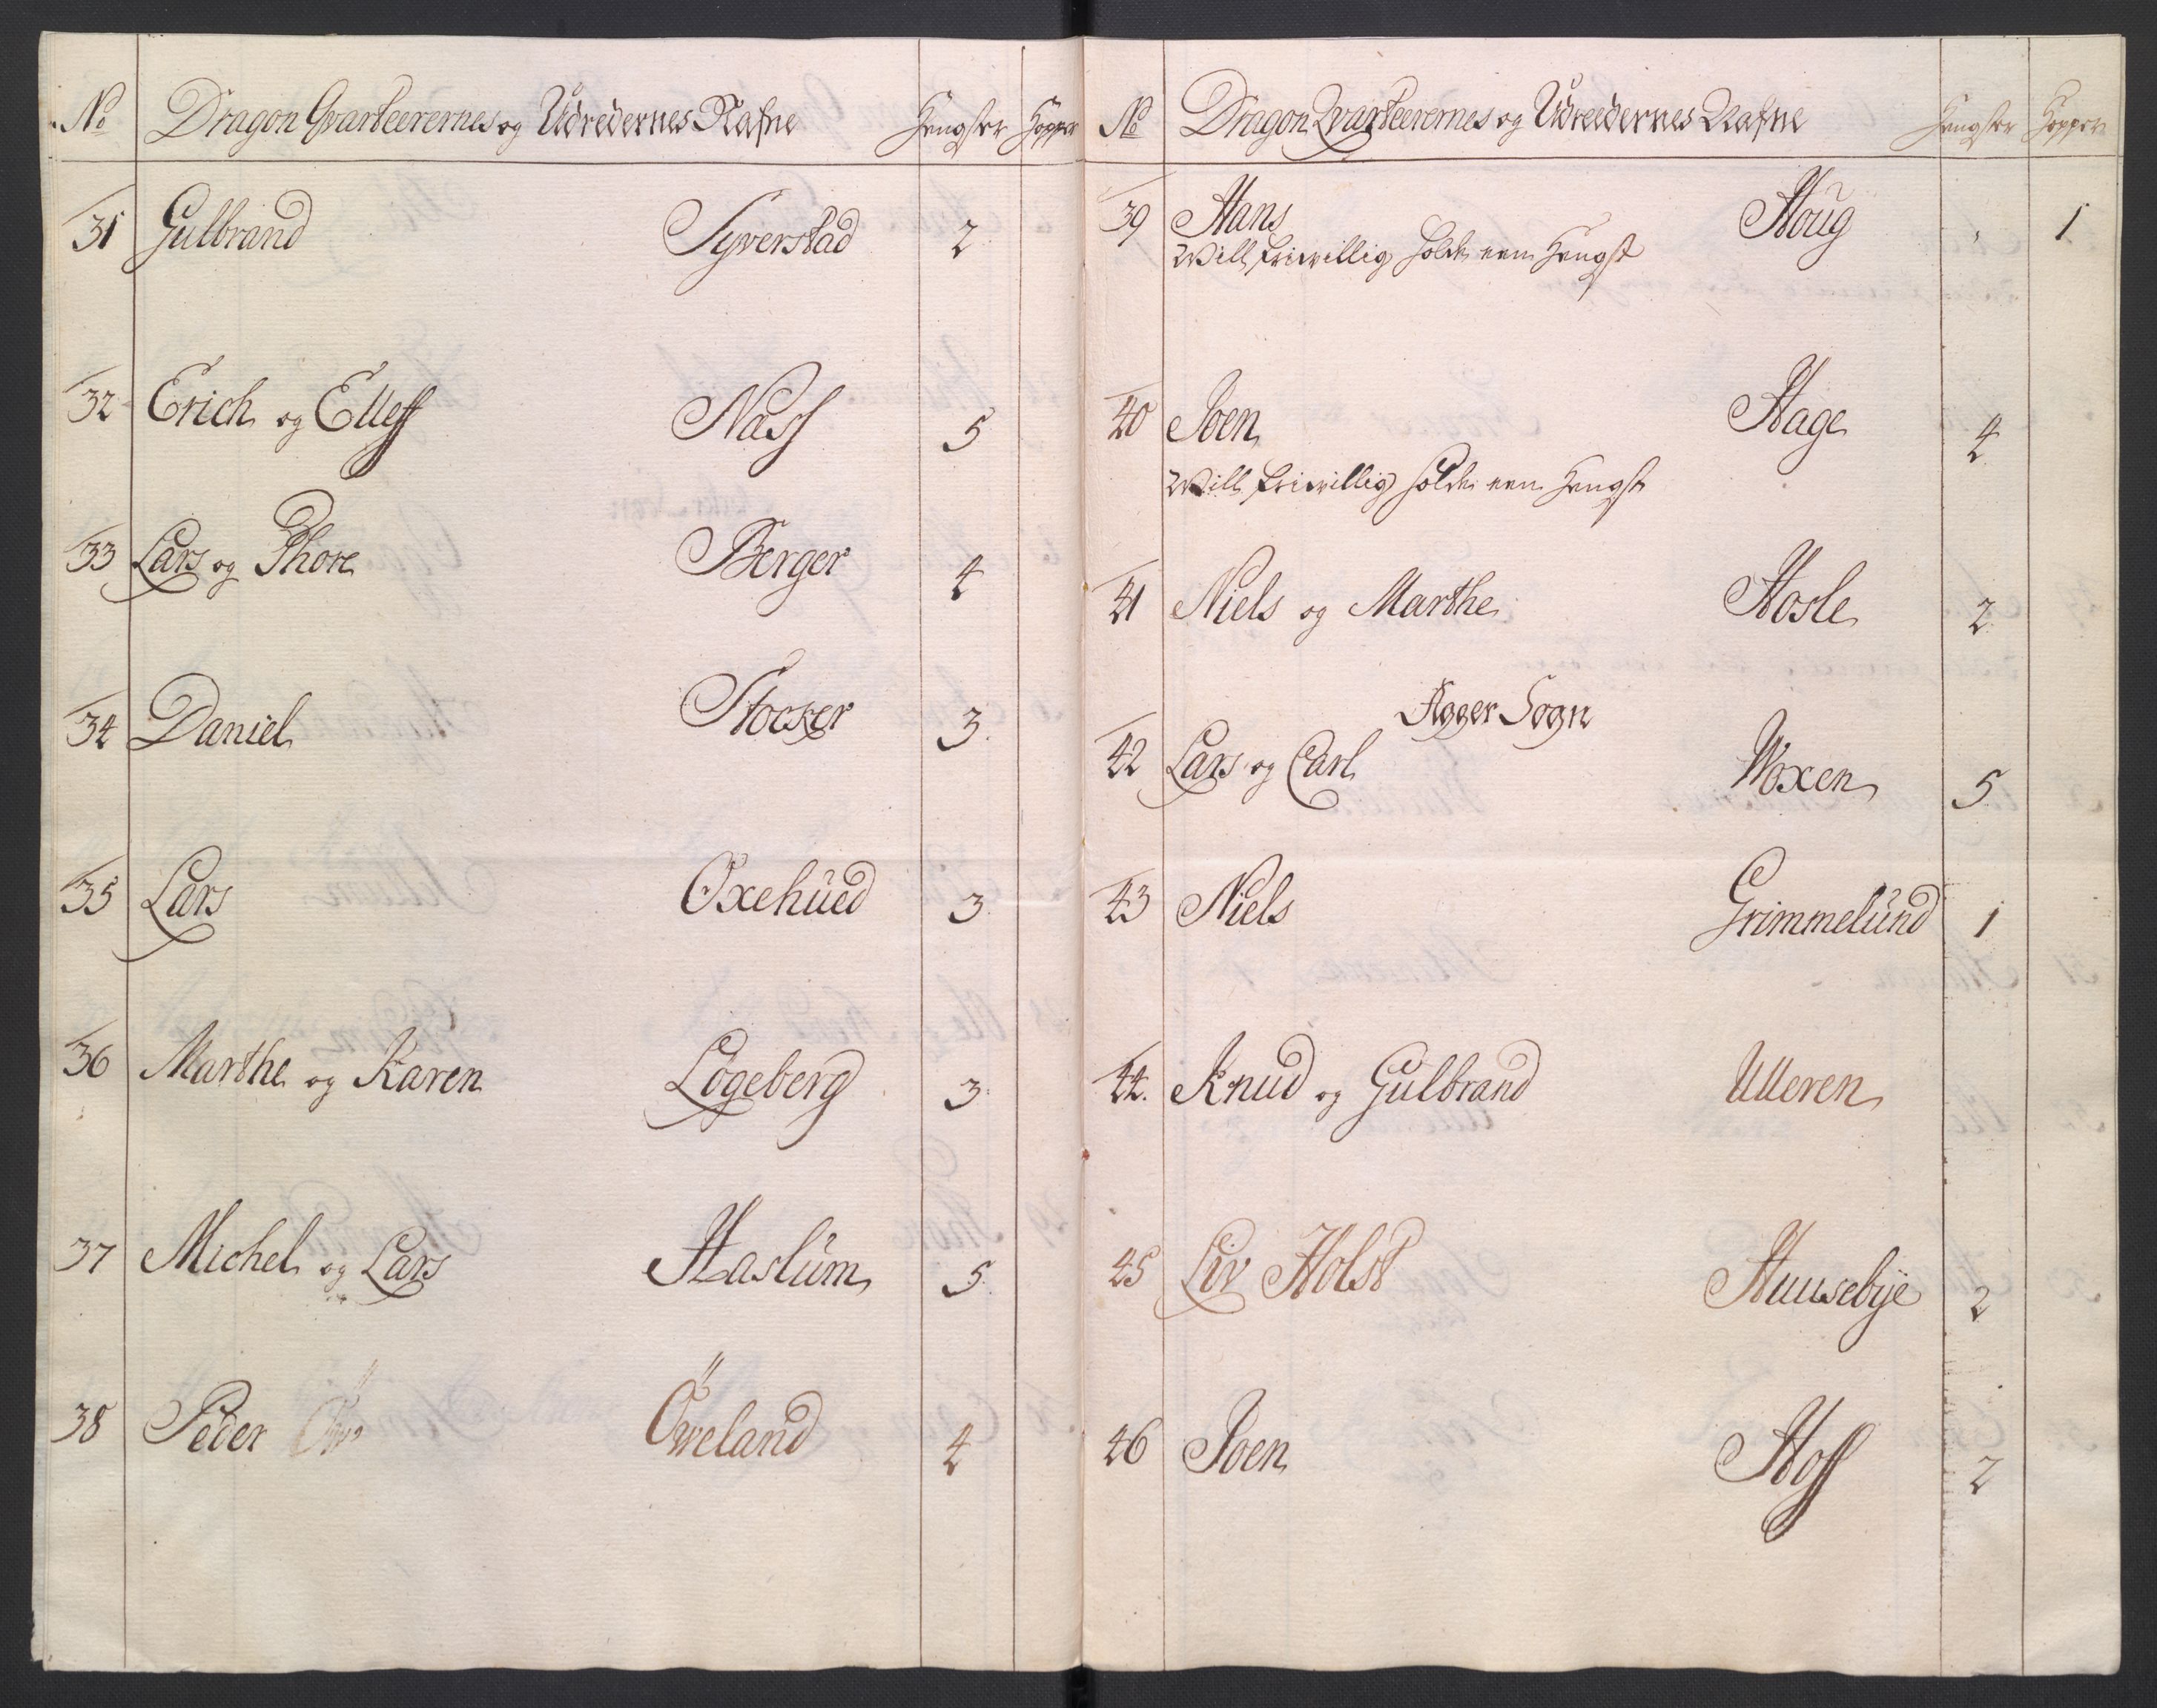 No Dragon Qvarteerernes og Udredernes Nafne Hengster Hopper
31 Gulbrand Syverstad 2
32 Erich og Elleff Næss 5
33 Lars og Thore Berger 4
34 Daniel Stocker 3.
35 Lars Oxehüed 3
36 Marthe og Karen Lögeberg 3
37 Michel og Lars Haslüm 5
38 Peder Öweland 4
No Dragon Qvarteerernes og Udreedernes Nafne Hengster Hopper
39 Hans Houg 1
Will friwillig holde een Hengst
40 Joen Hage 4
Will friwillig holde een Hengst
41 Niels og Marthe Hosle 2
Agger Sogn
42 Lars og Carl Woxen 5
43 Niels Grimmelünd 1
44. Knud og Gulbrand Ulleren
45 Liv Holst Huusebÿe 2
46 Joen Hoff 2